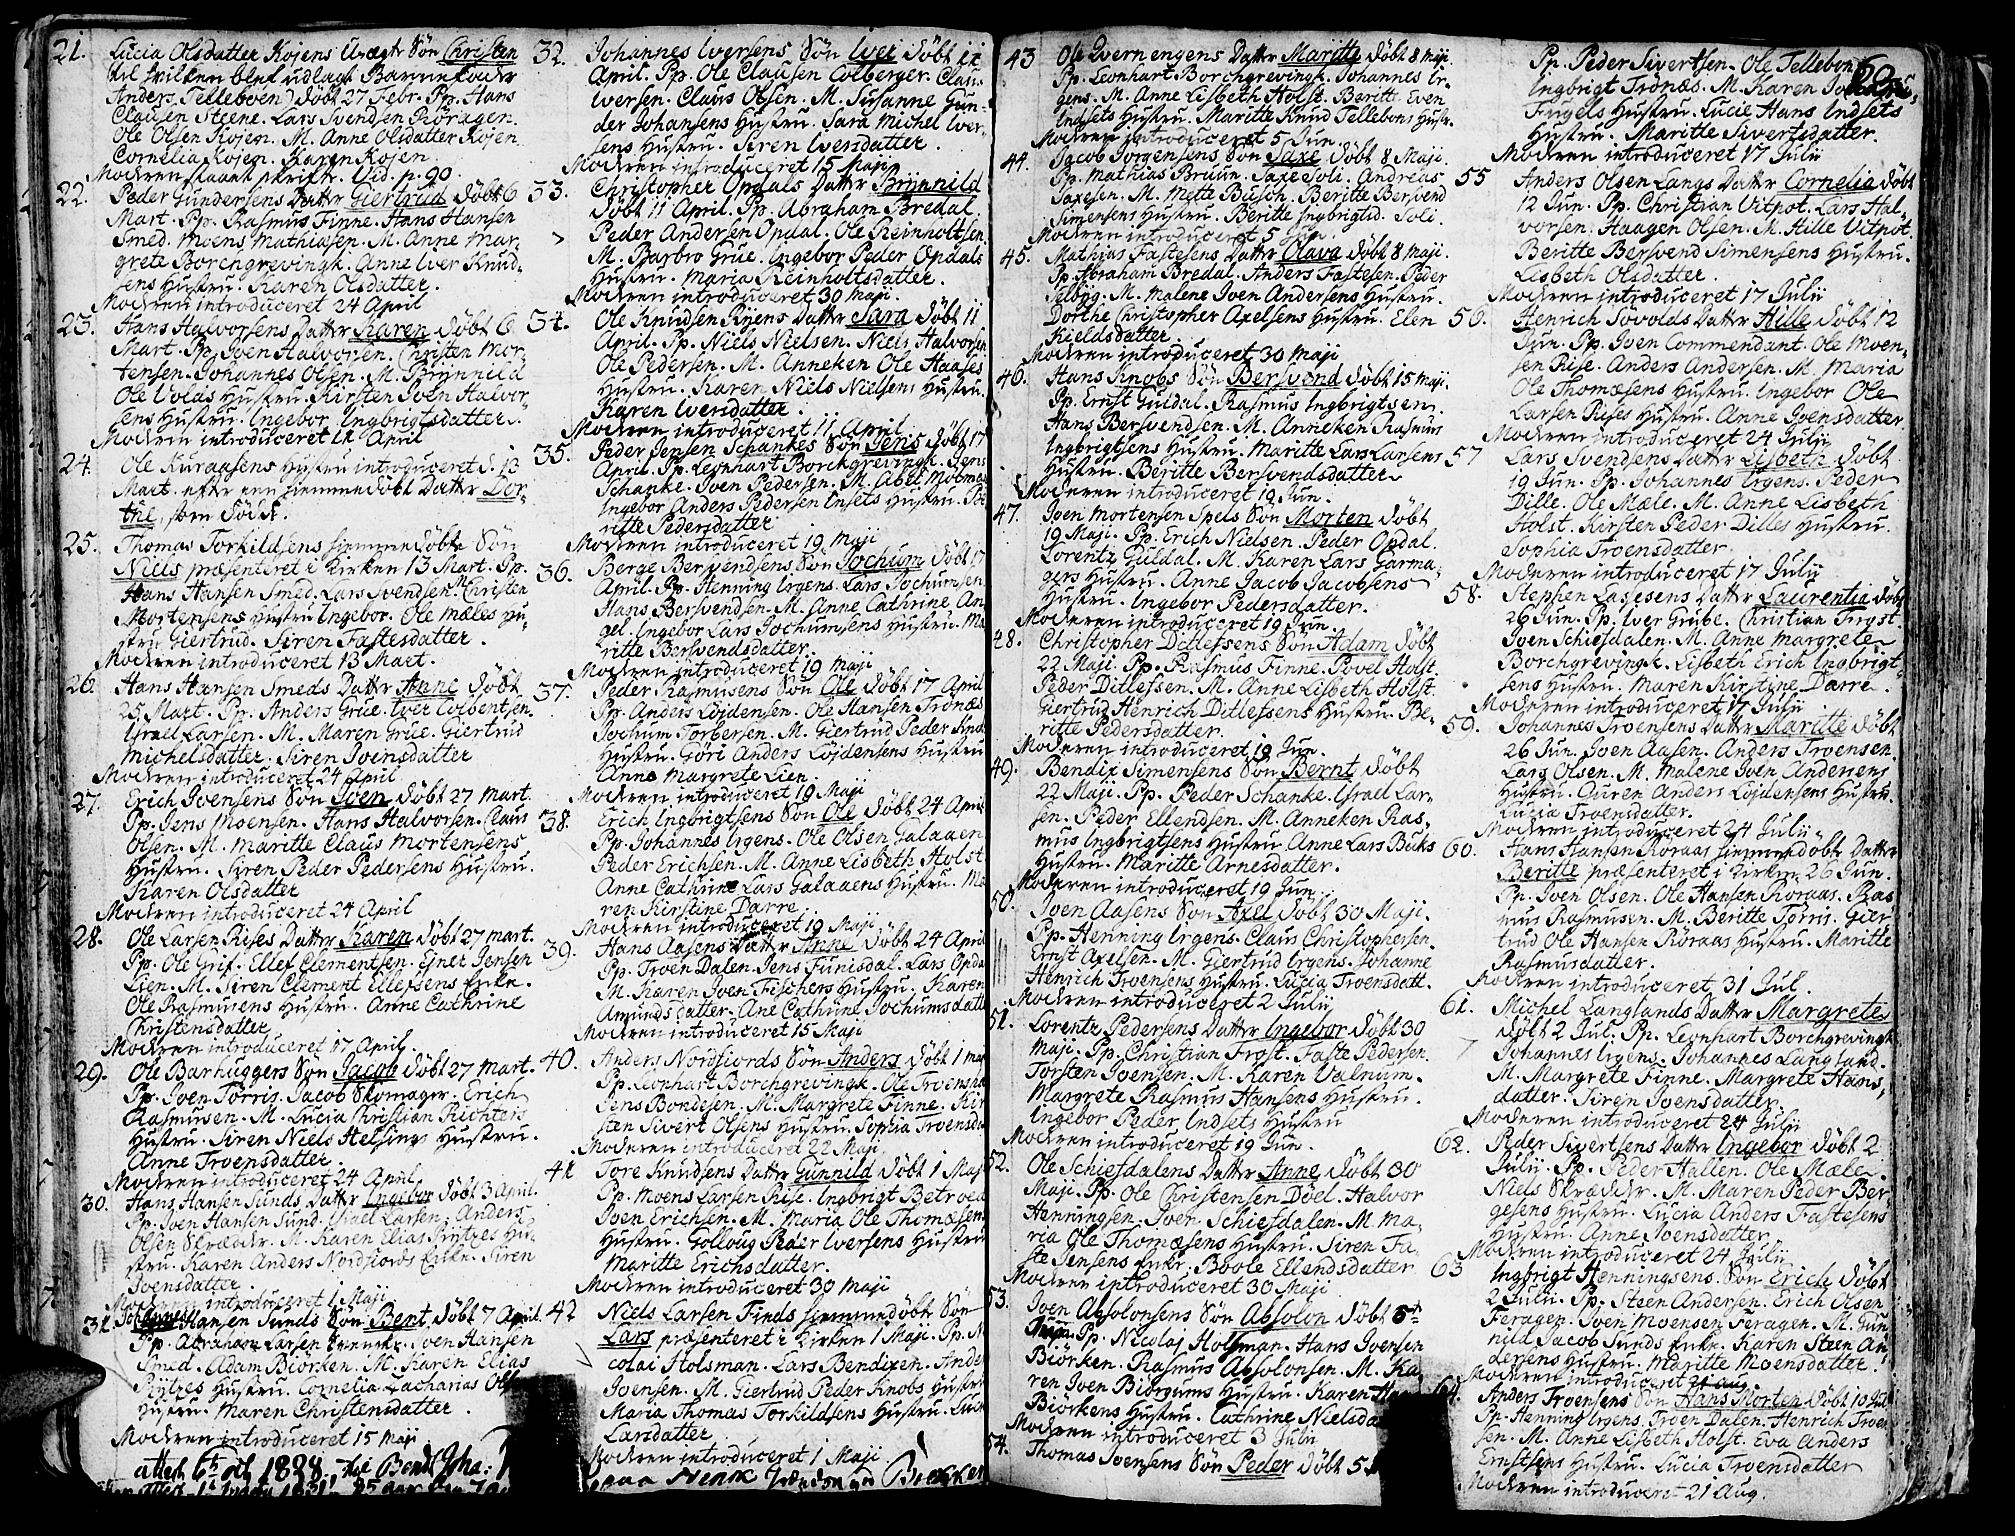 21. Lucia Olsdatter Kojens Uægte Søn Christen
til hvilken blef udlagt Barnefader
Anders Telleboen) døbt 27 Febr. Pp. Hans
Clausen Steene. Lars Svendsen Röragen.
Ole Olsen Kojen. M. Anne Olsdatter Kojen
Cornelia Kojen. Karen Kojen.
Moderen staaet skrifte. Vid. p. 90.
22. Peder Gundersens Datter Giertrud döbt 6
Mart. Pp. Rasmus Finne. Hans Hansen
Smed. Moens Mathiasen. M. Anne Mar-
grete Borchgrevingk. Anne Iver Knud-
sens Hustru. Karen Olsdatter.
Moderen introduceret 24 April
23. Hans Halvorsens Datter Karen döbt 6
Mart. Pp. Iven Halvorsen. Christen Mor-
tensen. Johannes Olsen. M. Brynnild
Ole Volds Hustru. Kirsten Iven Halvor-
sens Hustru. Ingebor Ingbrigtsdatter.
Moderen introduceret 11 April
24. Ole Kuraasens Hustru introduceret d. 13
Mart. efter een hiemmedöbt Datter Dor-
the, som döde.
25. Thomas Torkildsens hiemmedöbte Sön
Niels præsenteret i Kirken 13 Mart. Pp.
Hans Hansen Smed. Lars Svendsen. M. Christen
Mortensens Hustru Ingebor. Ole Mæles Hu-
stru Giertrud. Siren Fastesdatter.
Moderen introduceret 13 Mart.
26. Hans Hansen Smeds Datter Anne döbt
25 Mart. Pp. Anders Grüe. Iver Colbentsen
Israel Larsen. M. Maren Grüe. Giertrud
Michelsdatter. Siren Ivensdatter
Moderen introduceret 24 April
27. Erich Ivensens Sön Iven döbt 27 Mart.
Pp. Jens Moensen. Hans Halvorsen. Claus
Olsen. M. Maritte Claus Mortensens
Hustru. Siren Peder Pedersens Hustru.
Karen Olsdatter
Moderen introduceret 24 April
28. Ole Larsen Rises Datter Karen döbt 27 Mart.
Pp. Ole Grif. Ellef Clementsen. Ejner Jensen
Lien. M. Siren Clement Ellefsens Enke.
Ole Rasmusens Hustru. Anne Cathrine
Christensdatter
Moderen introduceret 17 April.
29. Ole Barhuggers Sön Jacob döbt 27 Mart.
Pp. Iven Törris. Jacob Skomager. Erich
Rasmusen. M. Lucia Christian Richters
Hustru. Siren Niels Helsings Hustru.
Anne Troensdatter.
Moderen introduceret 24 April
30. Hans Hansen Sunds Datter Ingebor döbt 3 April.
Pp. Iven Hansen Sund. Israel Larsen. Anders
Olsen Skræder. M. Karen Elias Pryttes Hu-
stru. Karen Anders Nordfiords Enke. Siren
Ivensdatter.
Moderen introduceret 1 Maji
31. Hansen Sunds Sön Bent döbt 7 April.
Pp. Abraham Larsen. Iven Hansen
Smed. Adam Biörken. M. Karen Elias
Pryttes Hustru. Cornelia Zacharias Ols
Hustru. Maren Christensdatter.
Moderen introduceret 15 Maji
32. Johannes Iversens Sön Iver döbt 11
April. Pp. Ole Clausen Colberger. Claus
Iversen. Claus Olsen. M. Susanne Gun-
der Johansens Hustru. Sara Michel Iver-
sens Hustru. Siren Iversdatter.
Moderen introduceret 15 Maji
33. Christopher Opdals Datter Brynnild
döbt 11 April. Pp. Abraham Bredal.
Peder Andersen Opdal. Ole Reinholtsen.
M. Barbro Grüe. Ingebor Peder Opdals
Hustru. Maria Reinholtsdatter.
Moderen introduceret 30 Maji.
34. Ole Knudsen Ryens Datter Sara döbt 11
April. Pp. Niels Nielsen. Niels Halvorsen
Ole Pedersen. M. Anneken Ole Haases
Hustru. Karen Niels Nielsens Hustru.
Karen Iversdatter.
Moderen introduceret 11 April
35. Peder Jensen Schankes Sön Jens döbt 17
April. Pp. Leonhart Borchgrevingk. Jens
Schanke. Iven Pedersen. M. Abel
Ingebor Anders Pedersen Insets Hustru. Be
ritte Pedersdatter
Moderen introduceret 19 Maji
36. Berge Bersvendsens Sön Jochum döbt 17
April. Pp. Henning Irgens. Lars Jochumsen
Hans Bersvendsen. M. Anne Cathrine An
gel. Ingebor Lars Jochumsens Hustru. Ma
ritte Bersvendsdatter.
Moderen introduceret 19 Maji
37. Peder Rasmusens Sön Ole döbt 17 April
Pp. Anders Löjdensen. Ole Hansen Trönæs
Jochum Torbersen. M. Giertrud Peder
Hustru. Göri Anders Löjdensens Hustru
Anne Margrete Lien.
Moderen introduceret 19 Maji
38. Erich Ingbrigtsens Sön Ole döbt 24 April
Pp. Johannes Irgens. Ole Olsen Galaaen
Peder Erichsen. M. Anne Lisbeth Holst
Anne Cathrine Lars Galaaens Hustru. Ma
ren Kirstine Darre
Moderen introduceret 19 Maji
39. Hans Aasens Datter Anne döbt 24 April
Pp. Troen Dalen. Jens Funisdal. Lars Opda
M. Karen Iven Fischers Hustru. Karen
Amundsdatter. Ane Cathrine Jochumsdatte
Moderen introduceret 15 Maji
40. Anders Nordfiords Sön Anders döbt 1 Maji
Pp. Leonhart Borchgrevingk. Ole Troensen
Jens Bondesen. M. Margrete Finne. Kir
sten Sivert Olsens Hustru. Sophia Troensda
Moderen introduceret 22 Maji.
41 Tore Knudsens Datter Gunnild döbt 1 Maji
Pp. Moens Larsen Rise. Ingbrigt Betroed
Iven Erichsen. M. Maria Ole Thomæsens
Hustru. Gollaug Peder Iversens Hustru
Maritte Erichsdatter.
Moderen introduceret 30 Maji
42 Niels Larsen Finds hiemmedöbte Sön
Lars præsenteret i Kirken 1 Maji. Pp. Ni
colai Holsman. Lars Bendixen. Anders
Ivensen. M. Giertrud Peder Knobs Hustru
Maria Thomas Torkildsens Hustru. Lucia
Larsdatter.
Moderen introduceret 1 Maji
43 Ole Evernengens Datter Maritte döbt 8 Maji.
Pp. Leonhart Borchgrevingk. Johannes Ir-
gens. M. Anne Lisbeth Holst. Beritte Even
Indsets Hustru. Maritte Knud Tellebons Hustr.
Moderen introduceret 5 Jun.
44. Jacob Jorgensens Sön Saxe döbt 8 Maji.
Pp. Mathias Bruun. Saxe Soli. Andreas
Saxesen. M. Mette Busch. Beritte Bersvend
Simensens Hustru. Beritte Ingbrigtsd. Soli.
Moderen introduceret 5 Jun.
45. Mathias Fastesens Datter Olava döbt 8 Maji.
Pp. Abraham Bredal. Anders Fastesen. Peder
Selbyg. M. Malene Iven Andersens Hustru.
Dorthe Christopher Axelsens Hustru. Elen
Kieldsdatter.
Moderen introduceret 30 Maji
46. Hans Knobs Sön Bersvend döbt 15 Maji.
Pp. Ernst Guldal. Rasmus Ingbrigtsen.
Hans Bersvendsen. M. Anneken Rasmus
Ingbrigtsens Hustru. Maritte Lars Larsens
Hustru. Beritte Bersvendsdatter.
Moderen introduceret 19 Jun.
47. Iven Mortensen Spels Sön Morten döbt
19 Maji. Pp. Erich Nielsen. Peder Opdal.
Lorentz Guldal. M. Karen Lars Garma-
gers Hustru. Anne Jacob Jacobsens
Hustru. Ingebor Pedersdatter.
Moderen introduceret 19 Jun.
48. Christopher Ditlefsens Sön Adam döbt
22 Maji. Pp. Rasmus Finne. Povel Holst.
Peder Ditlefsen. M. Anne Lisbeth Holst.
Giertrud Henrich Ditlefsens Hustru. Be-
ritte Pedersdatter.
Moderen introduceret 19 Jun.
49. Bendix Simensens Sön Bernt döbt
22 Maji. Pp. Peder Schanke. Israel Lar-
sen. Peder Ellendsen. M. Anneken Ras-
mus Ingbrigtsens Hustru. Anne Lars Buks
Hustru. Maritte Arnesdatter.
Moderen introduceret 19 Jun.
50. Iven Aasens Sön Axel döbt 30 Maji.
Pp. Henning Irgens. Claus Christophersen.
Ernst Axelsen. M. Giertrud Irgens. Johanne
Henrich Troensens Hustru. Lucia Troensdatt.
Moderen introduceret 2 Julii
51. Lorentz Pedersens Datter Ingebor döbt 30
Maji. Pp. Christian Frost. Faste Pedersen.
Torsten Ivensen. M. Karen Valnum.
Margrete Rasmus Hansens Hustru.
Ingebor Peder Indsets Hustru
Moderen introduceret 19 Jun.
52. Ole Schiefdalens Datter Anne döbt 30
Maji. Pp. Ole Christensen Döel. Halvor
Henningsen. Iven Schiefdalen. M. Ma-
ria Ole Thomæsens Hustru. Siren Fa-
ste Jensens Enke. Boole Ellendsdatter
Moderen introduceret 30 Maji
53. Iven Absolonsens Sön Absolon döbt 5te
Pp. Nicolaj Holsman. Hans Ivensen
Biörken. Rasmus Absolonsen. M. Ka-
ren Iven Biörgums Hustru. Karen
Biörkens Hustru. Cathrine Nielsda
Moderen introduceret 3 Julii
54. Thomas Ivensens Sön Peder döbt 5
60.
Pp. Peder Sivertsen. Ole Tellebon
Ingbrigt Trönæs. M. Karen
Fugels Hustru. Lucie Hans Indsets
Hustru. Maritte Sivertsdatter.
Moderen introduceret 17 Julii
55 Anders Olsen Langs Datter Cornelia döbt
12 Jun. Pp. Christian Vitpot. Lars Hal-
vorsen. Haagen Olsen. M. Hille Vitpot.
Beritte Bersvend Simensens Hustru.
Lisbeth Olsdatter.
Moderen introduceret 17 Julii
56. Henrich Sövolds Datter Hille döbt 12
Jun. Pp. Iven Commendant. Ole Moen-
sen Rise. Anders Andersen. M. Maria
Ole Thomæsens Hustru. Ingebor Ole
Larsen Rises Hustru. Anne Ivensdatter
Moderen introduceret 24 Julii
57 Lars Svendsens Datter Lisbeth döbt
19 Jun. Pp. Johannes Irgens. Peder
Dille. Ole Mæle. M. Anne Lisbeth
Holst. Kirsten Peder Dilles Hustru.
Sophia Troensdatter
Moderen introduceret 17 Julii
58. Stephen Lasesens Datter Laurentia döbt
26 Jun. Pp. Iver Grube. Christian Frost
Iven Schiefdalen. M. Anne Margrete
Borchgrevingk. Lisbeth Erich Ingbrigt-
sens Hustru. Maren Kirstine Darre.
Moderen introduceret 17 Julii
59. Johannes Troensens Datter Maritte döbt
26 Jun. Iven Aasen. Anders Troensen.
Lars Olsen. M. Malene Iven Andersens
Hustru. Guren Anders Löjdensens Hustru.
Lucia Troensdatter.
Moderen introduceret 24 Julii
60. Hans Hansen Röraas hiemmedöbte Datter
Beritte præsenteret i Kirken 26 Jun.
Pp. Iven Olsen. Ole Hansen Röraas. Ras
mus Rasmusen. M. Beritte Törris. Gier-
trud Ole Hansen Röraas Hustru. Maritte
Rasmusdatter.
Moderen introduceret 31 Jul.
61. Michel Langlands Datter Margrete
döbt 2 Jul. Pp. Leonhart Borchgrevingk
Johannes Irgens. Johannes Langland.
M. Margrete Finne. Margrete Hans-
datter. Siren Ivensdatter
Moderen introduceret 24 Julii
62. Peder Sivertsens Datter Ingebor döbt 2
Julii. Pp. Peder Hallen. Ole Mæle.
Niels Skræder. M. Maren Peder Ber-
gesens Hustru. Lucia Anders Fastesens
Hustru. Anne Ivensdatter.
Moderen introduceret 24 Julii
63 Ingbrigt Henningsens Sön Erich döbt
2 Julii. Pp. Steen Andersen. Erich Olsen
Feragen. Iven Moensen Feragen. M. Gun-
nild Jacob Sunds Enke. Karen Steen An-
dersens Hustru. Maritte Moensdatter.
Moderen introduceret 21 Aug
64. Anders Troensens Sön Hans Morten döbt 10 Jul
Pp. Henning Irgens. Troen Dalen. Henrich Troen-
sen. M. Anne Lisbeth Holst. Eva Anders
Ernstsens Hustru. Lucia Troensdatter
Moderen introduceret 21 Aug.